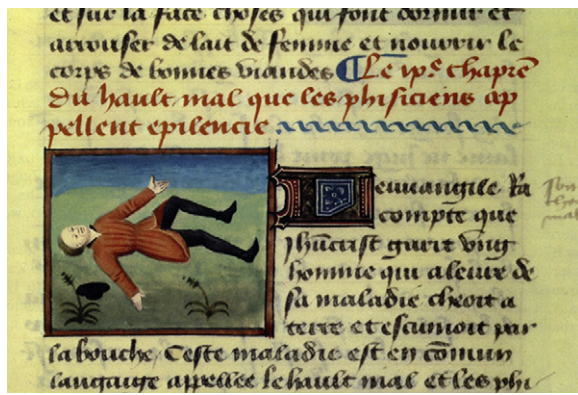 et sur la face choses qui font dormir et
arrouser de lait de femme et nourrir le
corps de bonnes viandes ¶ Le ixe chapr̄e
du hault mal que les phisiciens ap
pellent epilencie
L euuangile Ra
compte que
Jhūcrist garit vng
homme qui a leure de
sa maladie cheoit a
terre et escumoit par
la bouche, Ceste maladie est en cōmun
langaige appellee le hault mal et les phi-